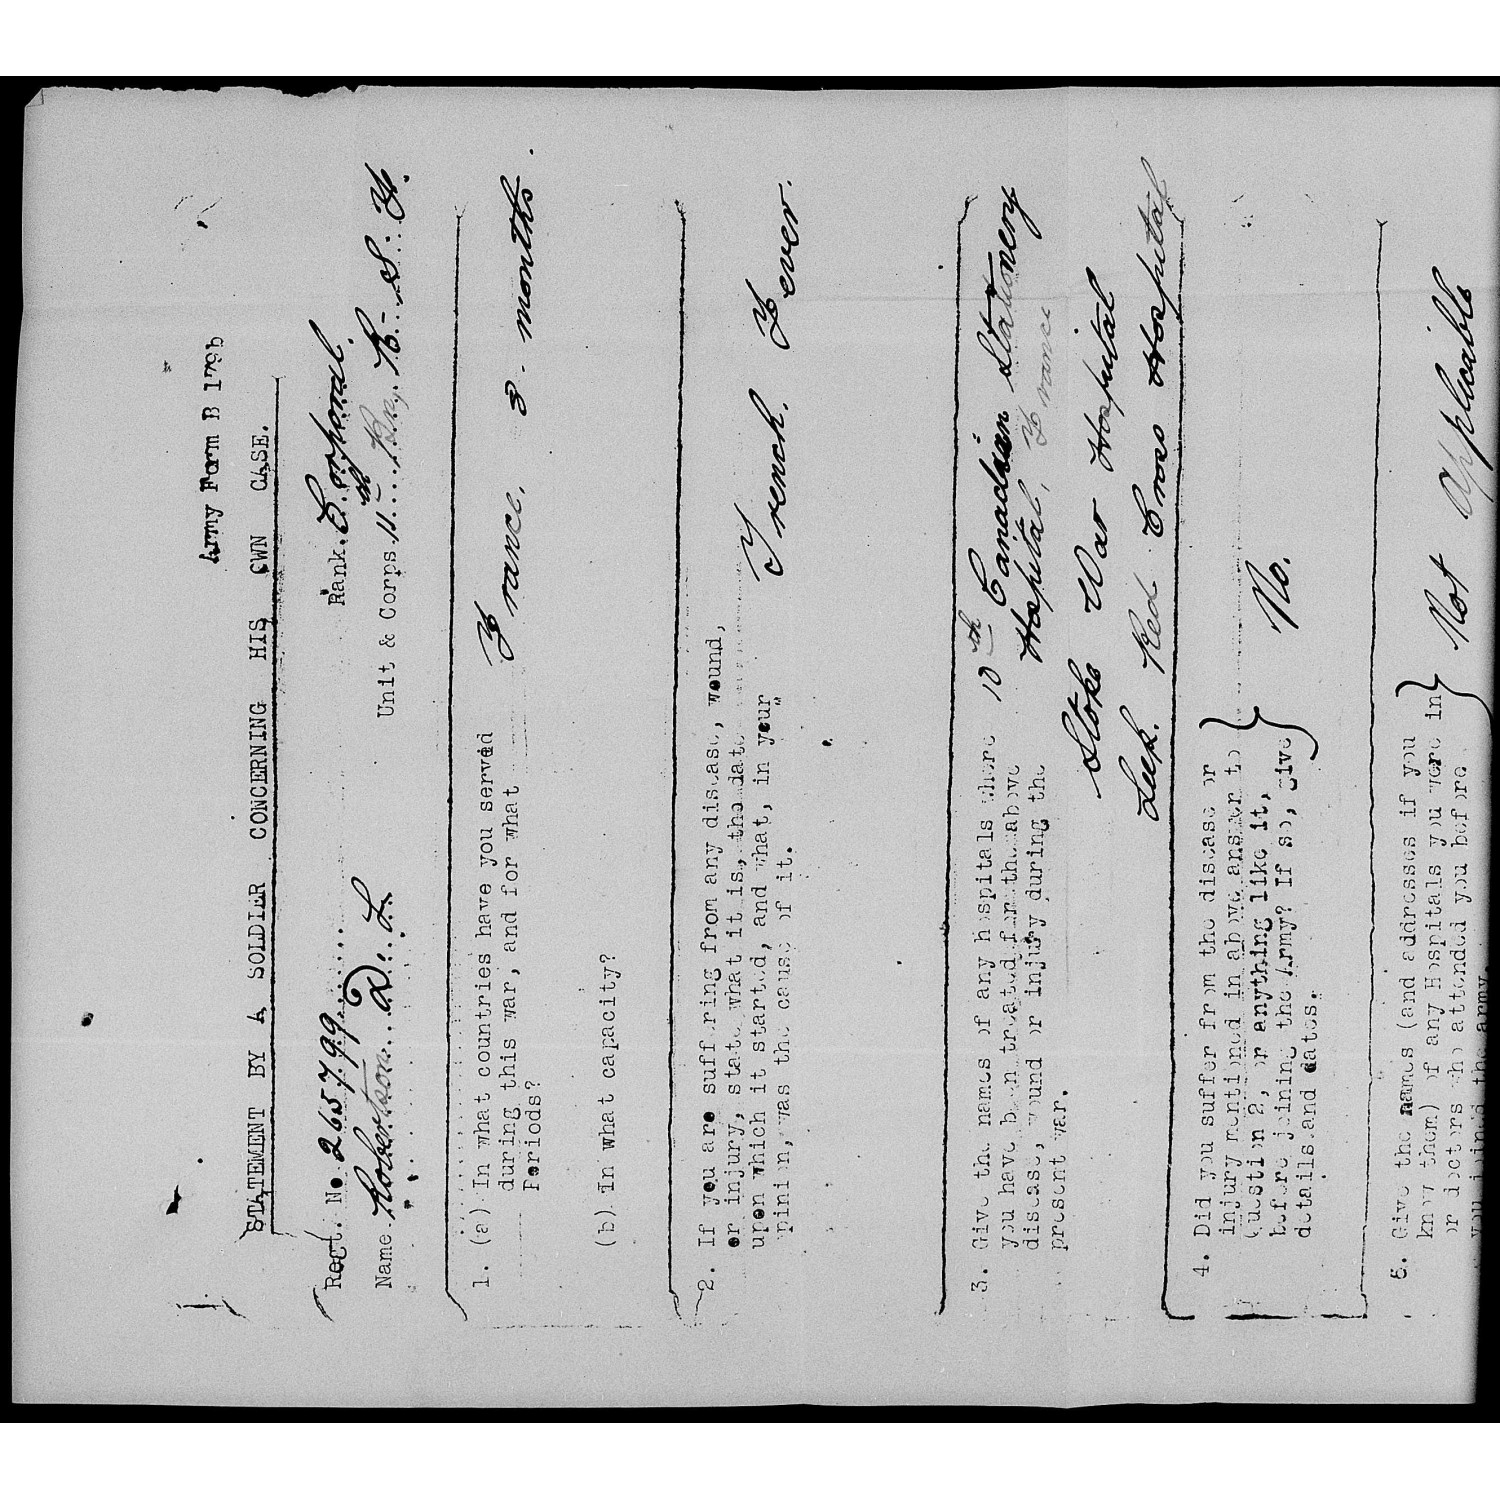 Army Form B 179b
STATEMENT BY A SOLDIER CONCERNING HIS OWN CASE.
Regt. No 265799........ Rank. Corporal.
Name. Robertson...D..F.. Unit & Corps 11th...Bn,.E...S..Y.
1. (a) In what countries have you served
during this war, and for what
Periods?
France. 3. months.
(b) In what capacity?
2. If you are suffering from any disease, wound,
or injury, state what it is, the date
upon which it started, and what, in your
opinion, was the cause of it.
Trench. Fever.
3. Give the names of any hospitals where
you have been treated for the above
disease, wound or injury during the
present war.
10th Canadian Stationery
Hospital, France
Stoke War Hospital
Leek. Red Cross Hospital
4. Did you suffer from the disease or
injury mentioned in above answer to
Question 2, or anything like it,
before joining the Army? If so, give
details and dates.
No.
5. Give the names (and addresses if you
know them) of any Hospitals you were in
or doctors who attended you before
you joined the army.
Not applicable